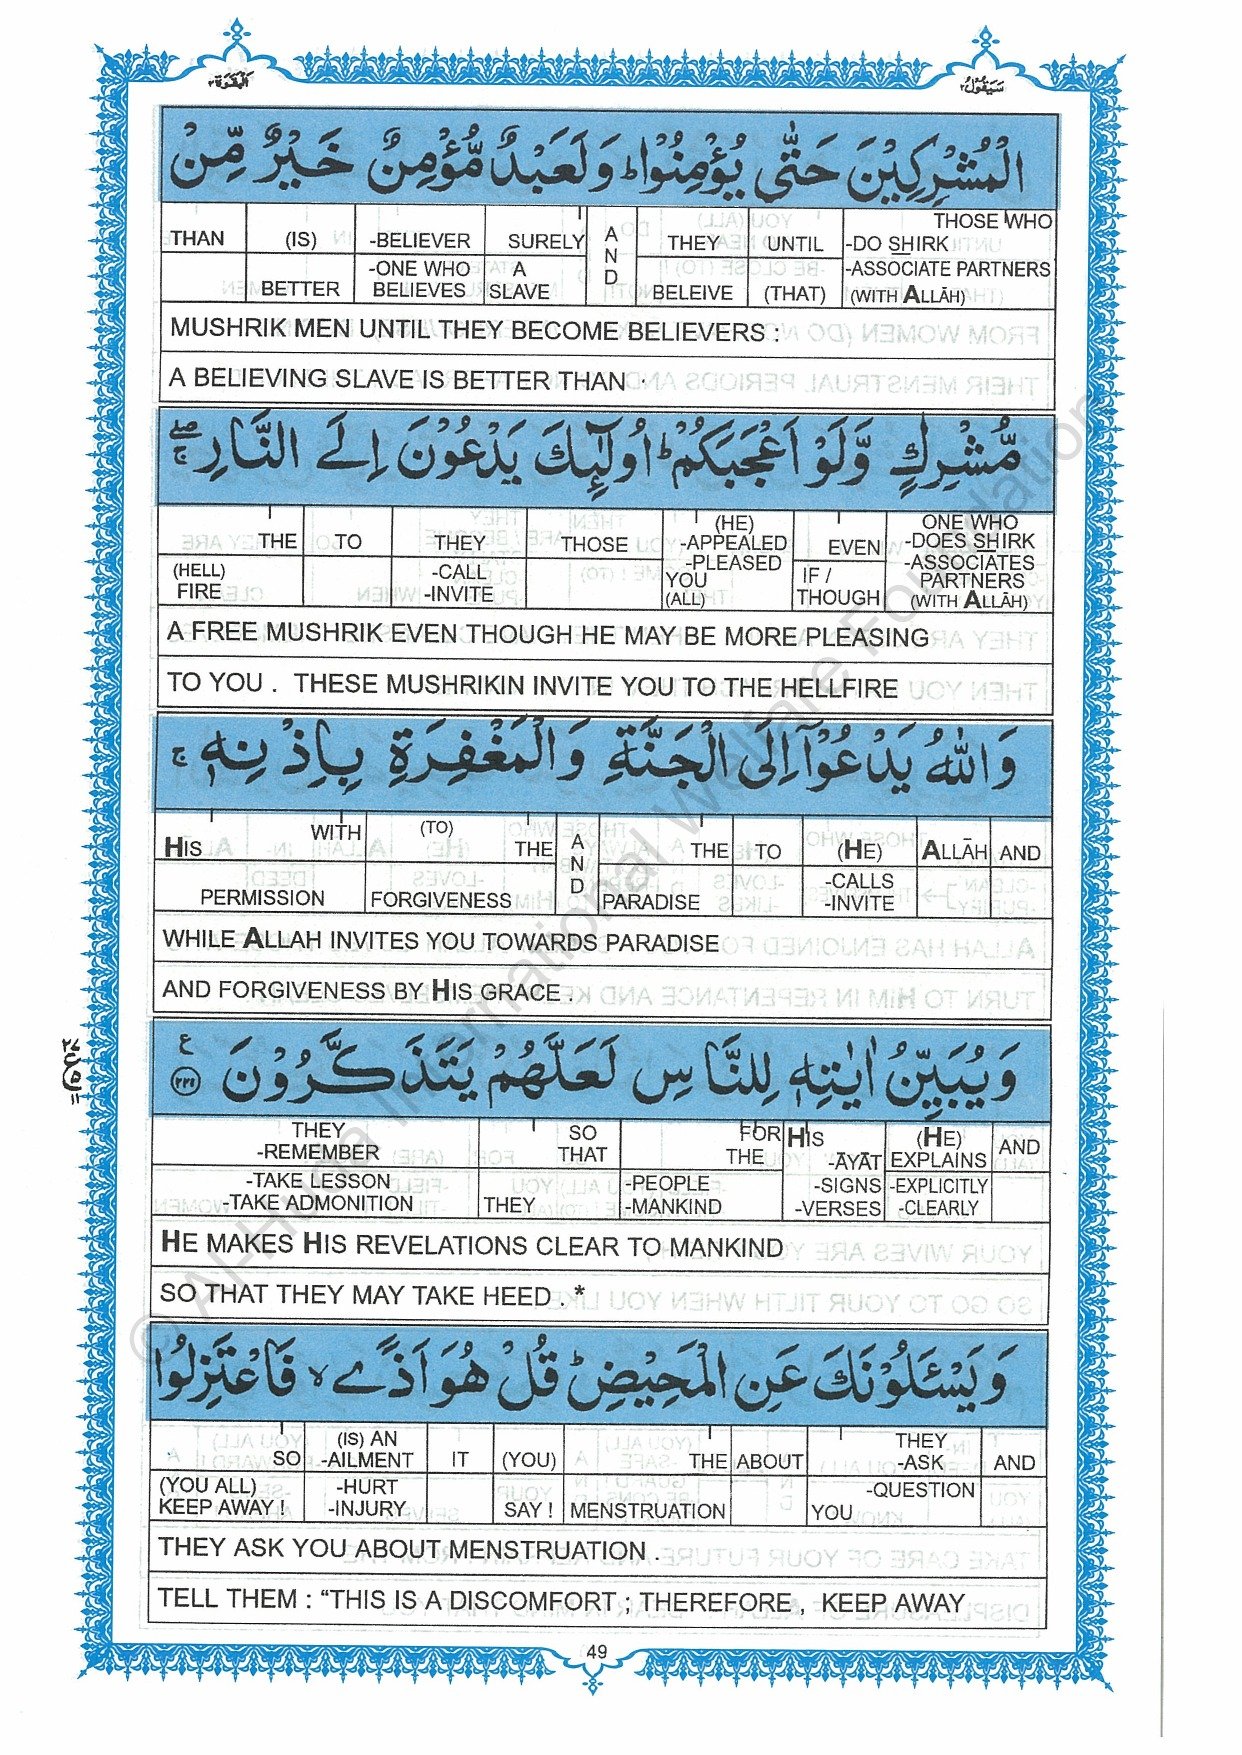 البقرة ٢
سيقول ٢
الْمُشْرِكِيْنَ حَتّٰى يُؤْمِنُوْا ؕ وَلَعَبْدٌ مُّؤْمِنٌ خَيْرٌ مِّنْ
THAN (IS) -BELIEVER SURELY AND THEY UNTIL THOSE WHO -DO SHIRK
BETTER -ONE WHO BELIEVES A SLAVE BELEIVE (THAT) -ASSOCIATE PARTNERS (WITH ALLĀH)
MUSHRIK MEN UNTIL THEY BECOME BELIEVERS :
A BELIEVING SLAVE IS BETTER THAN
مُّشْرِكٍ وَّلَوْ اَعْجَبَكُمْ ؕ اُولٰٓئِكَ يَدْعُوْنَ اِلَى النَّارِ ۖۚ
THE TO THEY THOSE (HE) -APPEALED -PLEASED EVEN ONE WHO -DOES SHIRK
(HELL) FIRE -CALL -INVITE YOU (ALL) IF / THOUGH -ASSOCIATES PARTNERS (WITH ALLĀH)
A FREE MUSHRIK EVEN THOUGH HE MAY BE MORE PLEASING
TO YOU . THESE MUSHRIKIN INVITE YOU TO THE HELLFIRE
وَاللّٰهُ يَدْعُوْٓا اِلَى الْجَنَّةِ وَالْمَغْفِرَةِ بِاِذْنِهٖ ۚ
HIS WITH (TO) THE AND THE TO (HE) ALLĀH AND
PERMISSION FORGIVENESS PARADISE -CALLS -INVITE
WHILE ALLAH INVITES YOU TOWARDS PARADISE
AND FORGIVENESS BY HIS GRACE .
وَيُبَيِّنُ اٰيٰتِهٖ لِلنَّاسِ لَعَلَّهُمْ يَتَذَكَّرُوْنَ ۝٢٢١ ع
THEY -REMEMBER SO THAT FOR THE HIS -ĀYĀT (HE) EXPLAINS AND
-TAKE LESSON -TAKE ADMONITION THEY -PEOPLE -MANKIND -SIGNS -VERSES -EXPLICITLY -CLEARLY
HE MAKES HIS REVELATIONS CLEAR TO MANKIND
SO THAT THEY MAY TAKE HEED . *
وَيَسْـَٔلُوْنَكَ عَنِ الْمَحِيْضِ ؕ قُلْ هُوَ اَذًى ۙ فَاعْتَزِلُوا
SO (IS) AN -AILMENT IT (YOU) THE ABOUT THEY -ASK AND
(YOU ALL) KEEP AWAY ! -HURT -INJURY SAY ! MENSTRUATION YOU -QUESTION
THEY ASK YOU ABOUT MENSTRUATION .
TELL THEM : “THIS IS A DISCOMFORT ; THEREFORE , KEEP AWAY
49
© Al-Huda International Welfare Foundation